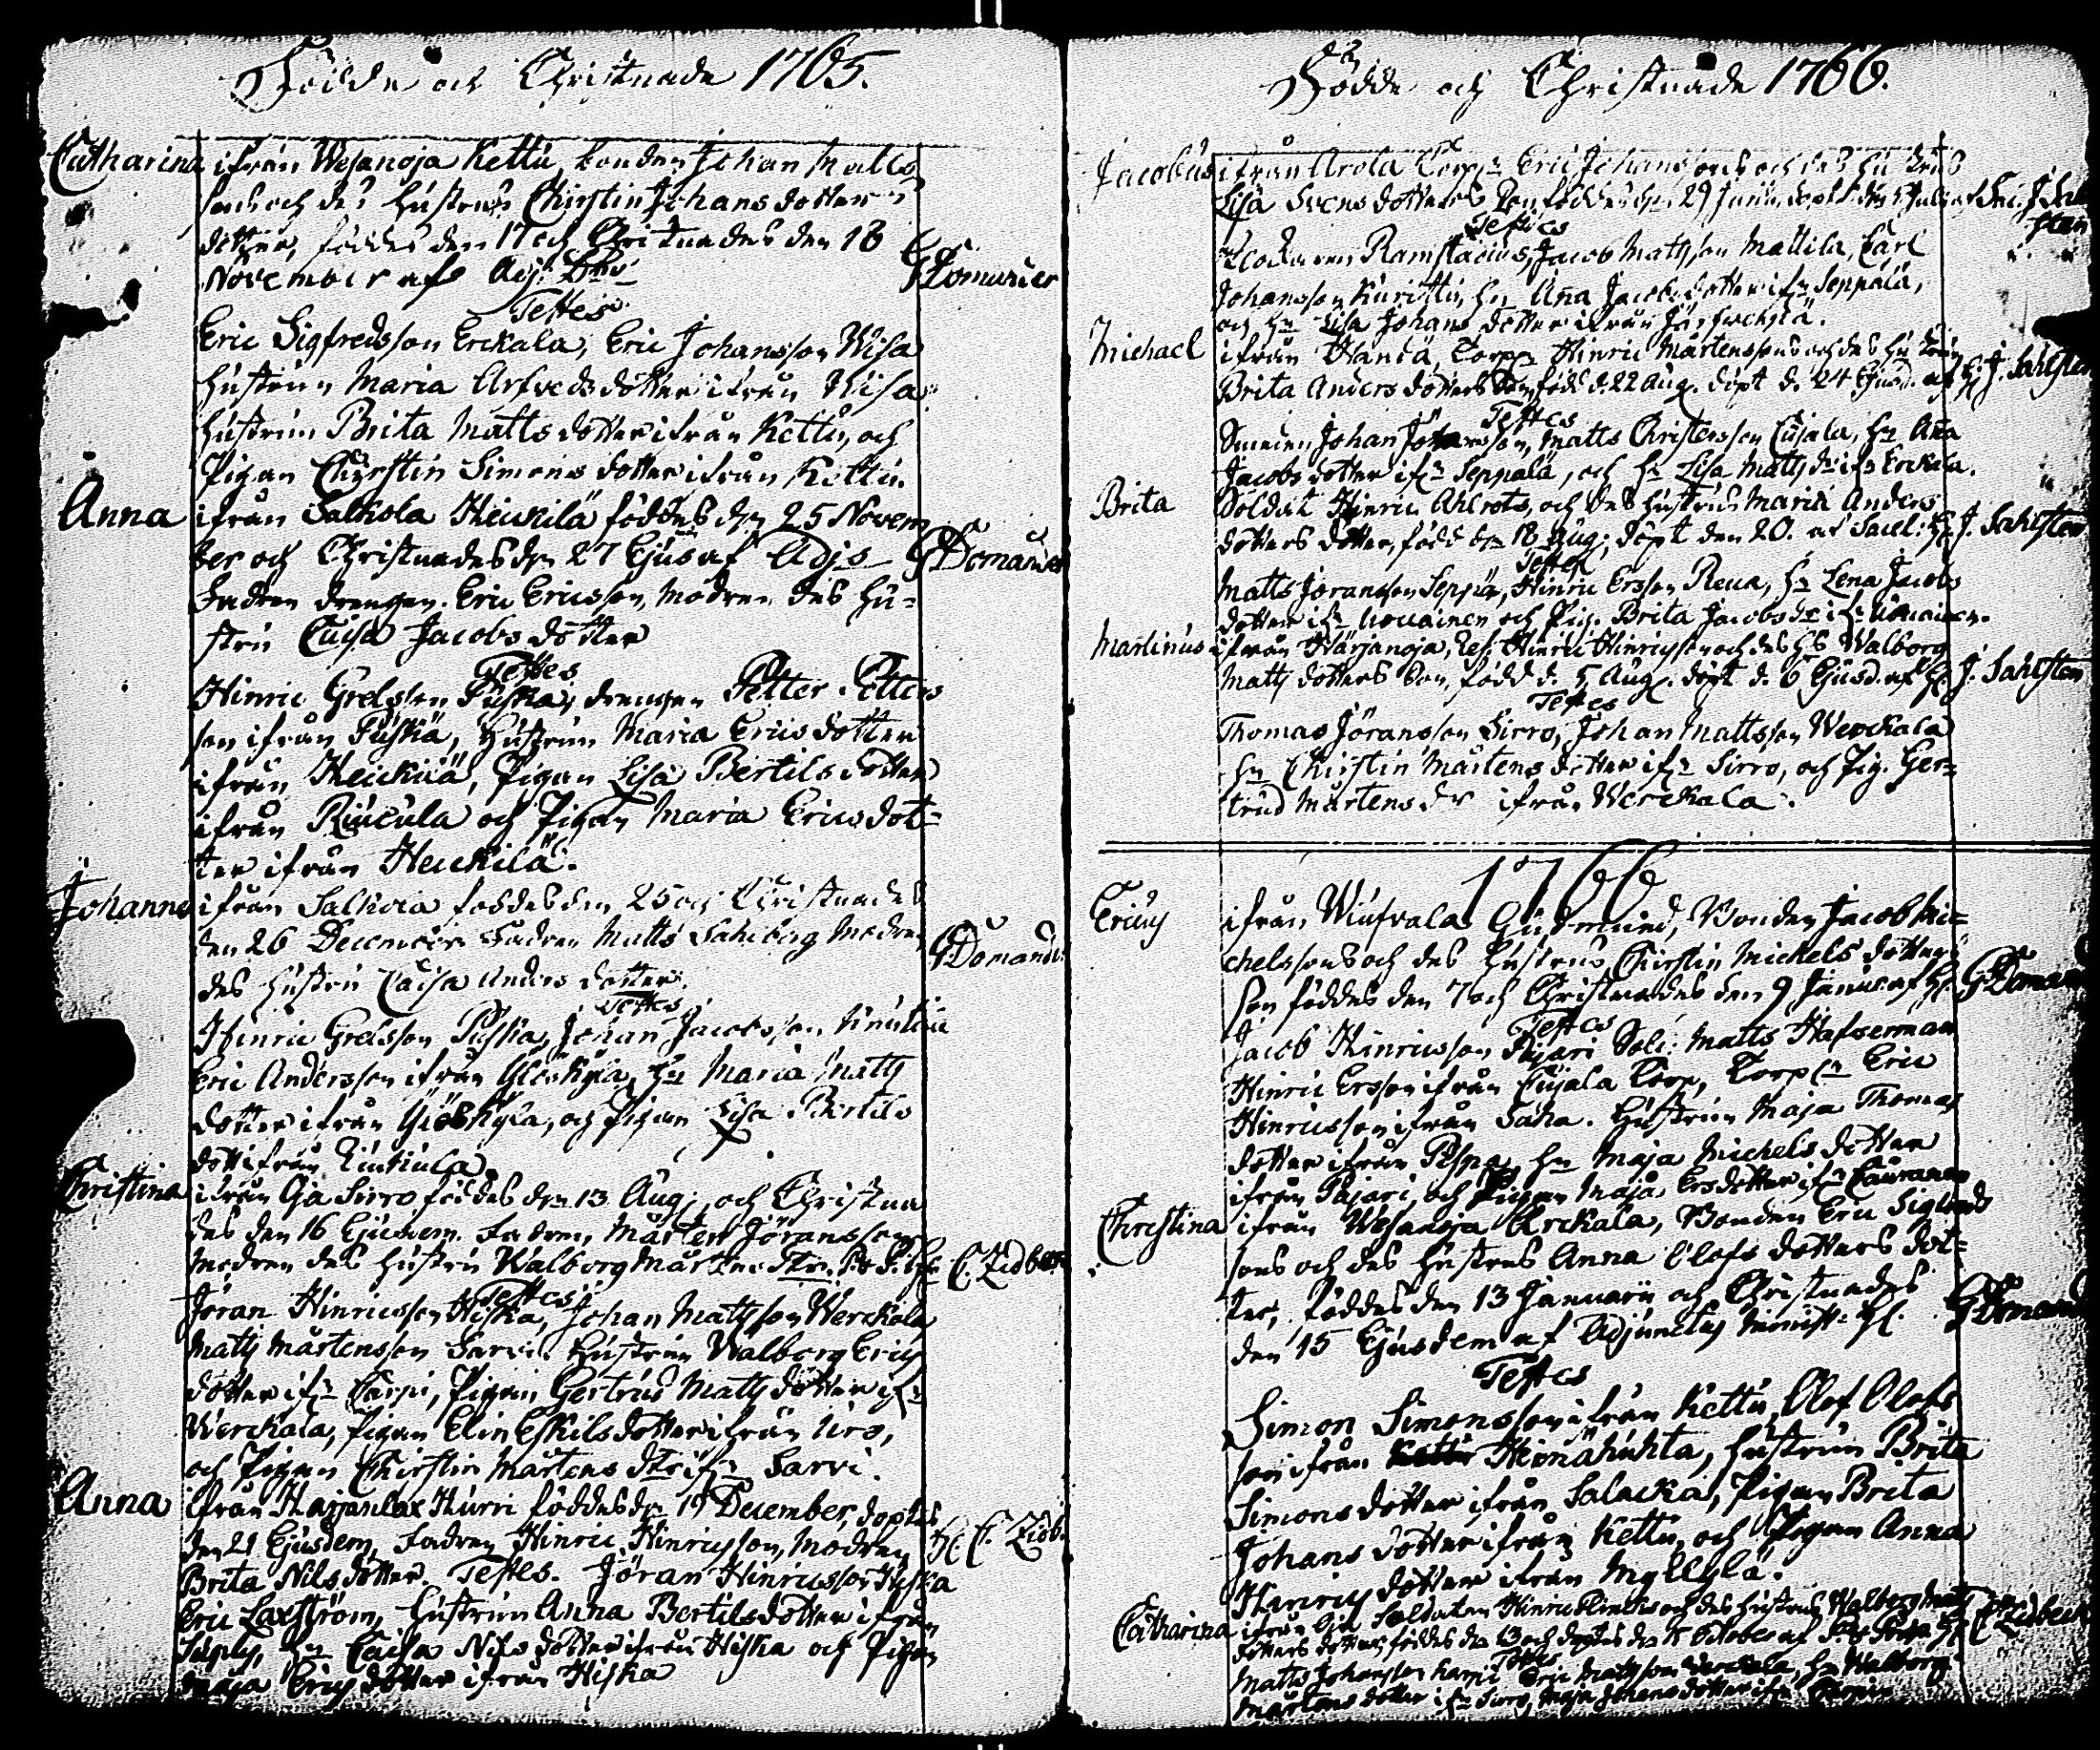 Födde och Christnade 1765.
Catharina ifrån Wesanoja Kettu, bonden Johan Matts
sons och des hustrus Chirstin Johansdotters
dotter, föddes den 17 och Christnades den 18
November af Adj.
G Domander
Testes
Eric Sigfredsson Erckala, Eric Johansson Wisa
hustrun Maria Arfvedsdotter ifrån Wisa
hustrun Brita Mattsdotter ifrån Kettu, och
Pigan Chirstin Simonsdotter ifrån Kettu.
Anna ifrån Salkola Heickilä föddes den 25 Novem
ber och Christnades den 27 Ejus af Adj. G Domander
Fadren drengen Eric Ericsson, modren des hu-
stru Caisa Jacobsdotter
Testes
Hinric Grelsson Puska, drengen Petter Petters
son ifrån Puska, hustrun Maria Ericsdotter
ifrån Heickilä, Pigan Lisa Bertilsdotter
ifrån och Pigan Maria Ericsdot-
ter ifrån Heickilä.
Johannes ifrån Salkola föddes den 25 och Christnades
den 26 December Fadren Matts Sahlberg Modren
des hustru Caisa Andersdotter. G Domander
Testes
Hinric Grelsson Puska, Johan Jacobsson
Eric Andersson ifrån Yliskylä, hu Maria Matts
dotter ifrån Yliskylä, och Pigan Lisa Bertils
dott ifrån
Christina ifrån Oja Sirro föddes den 13 Aug. och Christna
des den 16 Ejusdem. Fadren, Mårten Jöransson
modren des hustru Walborg Mårtens dtr. C. Lidbeck
Testes
Jöran Hinricsson Hiska, Johan Mattsson Werckala
Matts Mårtensson Sarvi. Hustrun Walborg Erics
dotter ifn Carpi, Pigan Gertrud Mattsdotter ifn
Werckala, Pigan Elin Eskilsdotter ifrån Uro,
och Pigan Chirstin Mårtens dtr ifn Sarvi.
Anna ifrån Harjanlax Hurri föddes dn 19 December, döptes
den 21 Ejusdem, Fadren Hinric Hinricsson, Modren H. C. Lidb.
Brita Nilsdotter. Testes. Jöran Hinricsson Hiska
Eric Laxström, hustrun Anna Bertilsdotter ifrån
hu Caisa Nilsdotter ifrån Hiska och Pigan
Maja Ericsdotter ifrån Hiska
Födde och Christnade 1766.
Jacobus ifrån Arola Torp. Eric Johanssons och des hustrus
Lisa Svensdotters Son föddes den 29 Junii, döpt den af
Testes
Klockaren Ramstadius, Jacob Mattsson Mattila, Carl
Johansson Kurittu, hu Anna Jacobsdotter ifn Seppälä,
och hu Lisa Johansdotter ifrån
Michael ifrån Torp. Hinric Mårtenssons och des hustrus
Brita Andersdotters Son född d. 22 Aug. döpt d. 24 Ejusd. af H. J. Sahlsten
Testes
Smeden Johan Johansson, Matts Christersson Cujala, hu Anna
Jacobsdotter ifn Seppälä, och hu Lisa Matts dr ifn Erckala.
Brita Soldat Hinric Ahlrots, och des hustrus Maria Anders
dotters dotter, född den 18 Aug. döpt den 20. af H. J. Sahlsten
Testes
Matts Jöransson Seppä, Hinric Ersson hu Lena Jacobs
dotter ifn och Pig. Brita Jacobs dr ifn
Martinus ifrån Härjanoja, Hinric Hinricsson och des hs Walborg
Matts dotters Son, född d. 5 Aug. döpt d. 6 Ejusd. af H. J. Sahlsten
Testes
Thomas Jöransson Sirro, Johan Mattsson Werckala
hu Chirstin Mårtensdotter ifn Sirro, och Pig. Ger-
trud Mårtens dr ifrån Werckala.
1766
Ericus ifrån Gudmund, Bonden Jacob Mi-
chelssons och des hustrus Chirstin Michelsdotters
Son föddes den 7 och Christnades den 9 Januar. af H. G Domander
Testes
Jacob Hinricsson Pajari Sold: Matts Hafserman
Hinric Ersson ifrån Cujala Torp, Torp. Eric
Hinricsson ifrån Saha. Hustrun Maja Thomas
dotter ifrån Pispa, hu Maja Michelsdotter
ifrån Pajari, och Pigan Maja Ersdotter ifn Cauranen
Christina ifrån Wesanoja Erckala, Bonden Eric Sigfreds
sons och des hustrus Anna Olofsdotters dot-
ter, föddes den 13 Januarii och Christnades
den 15 Ejusdem af Adjunctus Minist. H. G Domander
Testes
Simon Simonsson ifrån Kettu, Olof Olofs
son ifrån Heinähuhta, hustrun Brita
Simonsdotter ifrån Salacka, Pigan Brita
Johansdotter ifrån Kettu, och Pigan Anna
Henricsdotter ifrån Myllylä.
Catharina ifrån Oja Soldaten Hinric och des hustrus Walborg Matts
dotters dotter, föddes den 13 och döptes den October af C. Lidbeck
Testes
Matts Johansson Eric Mattsson Werckala, hu Walborg
Mårtensdotter ifn Sirro, Maja Johansdotter ifn